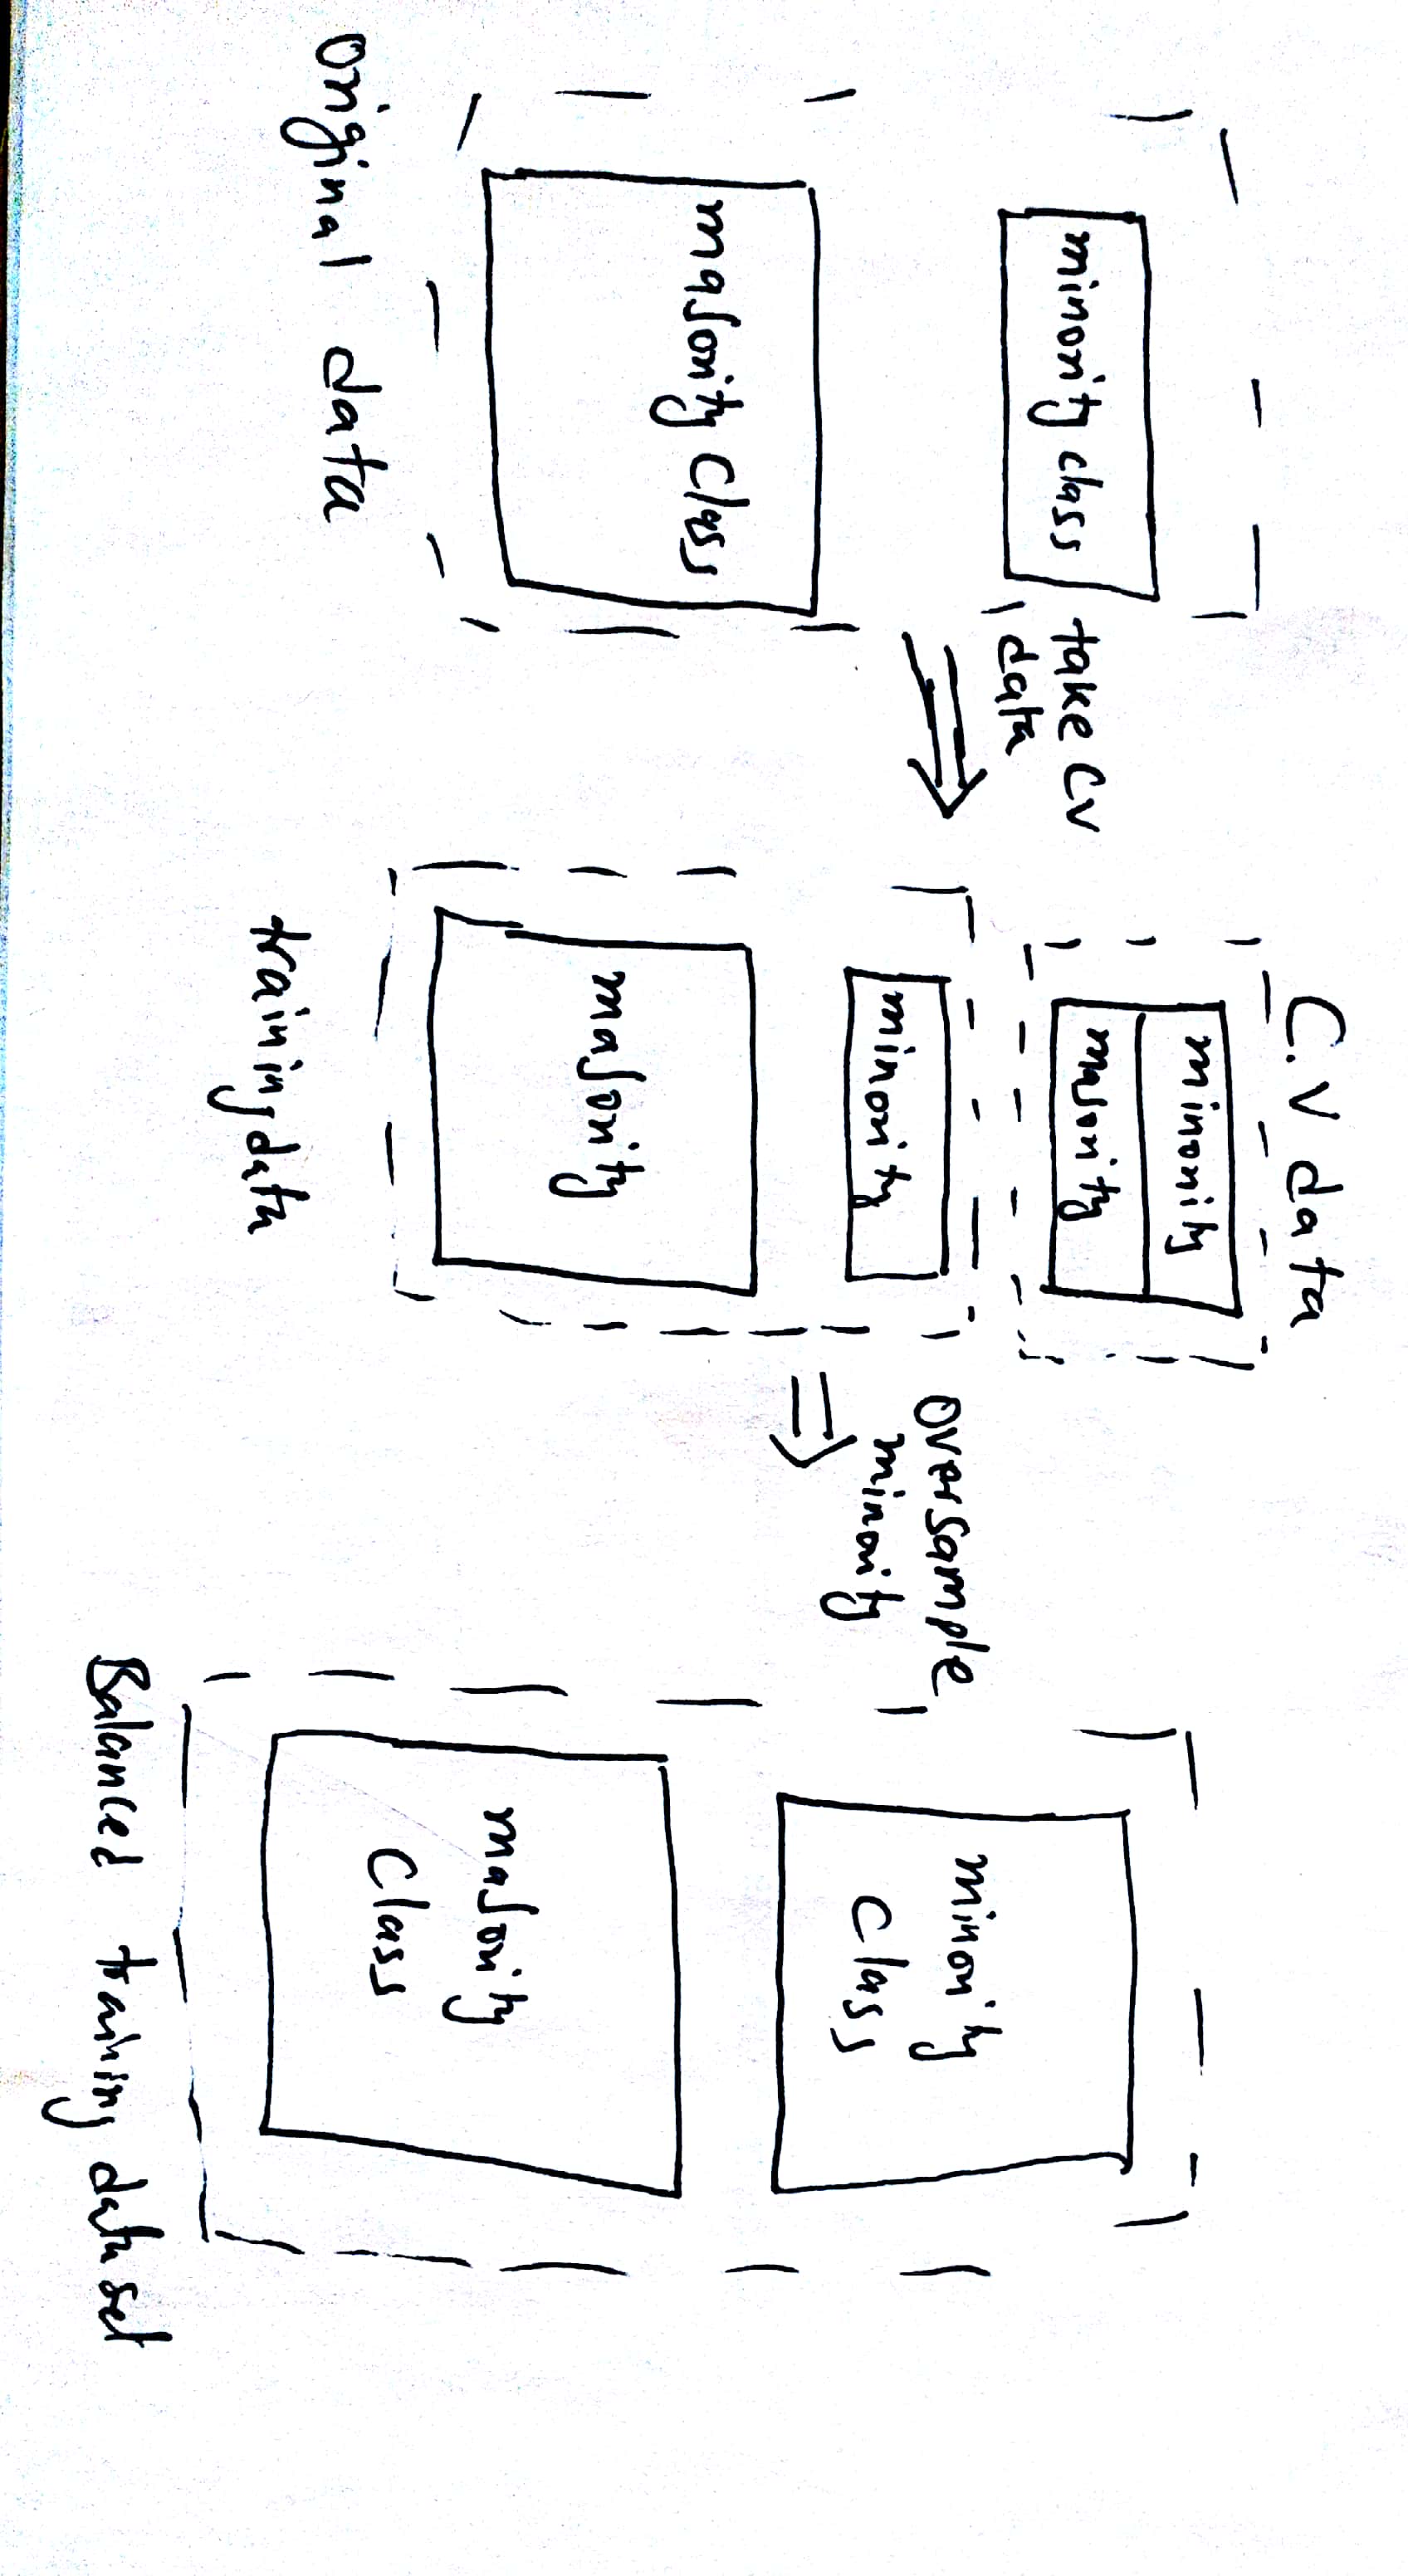 minority class
majority class
original data
take CV
data
C.V data
minority
majority
minority
majority
training data
oversample
minority
minority
class
majority
class
Balanced training dataset